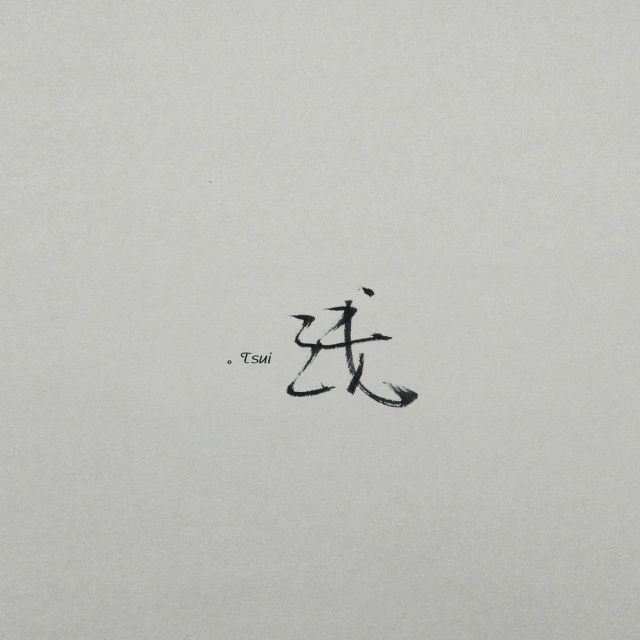 。Tsui 线